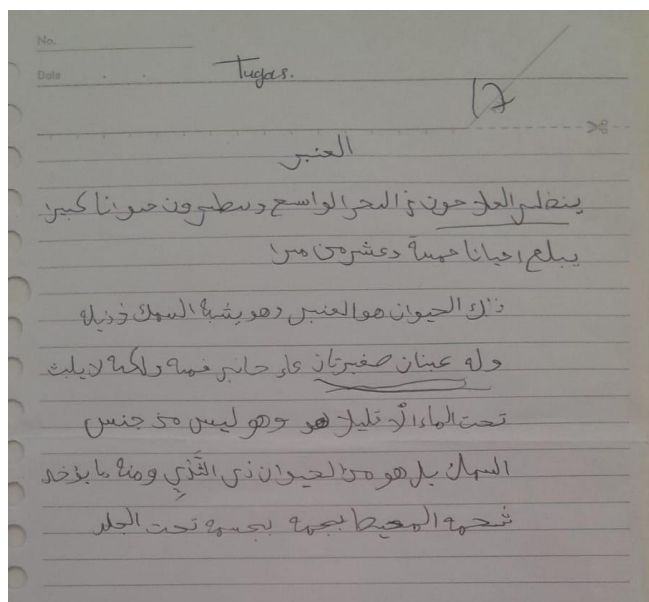 No.
Date
Tugas.
العنبر
ينظر الملاحون في البحر الواسع وينظرون حيوانا كبيرا
يبلغ احيانا خمسة وعشرين مترا
ذلك الحيوان هو العنبر وهو يشبه السمك في ذيله
وله عينان صغيرتان على جانبي فمه ولكنه لا يلبث
تحت الماء الّا قليلا هو وهو ليس من جنس
السمك بل هو من الحيوان ذي الثَّدْيِ ومنه ما يؤخد
شحمه المحيط بجمه بجسمه تحت الجلد